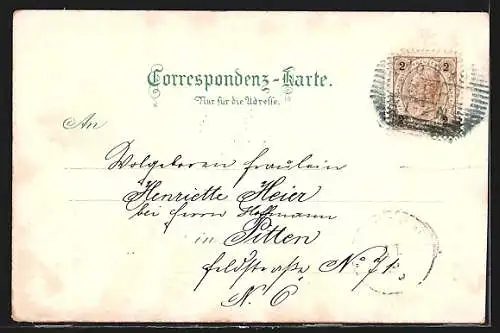 Correspondenz-Karte.
Nur für die Adresse.
2 2
An
Wolgeboren Fräulein
Henriette Heier
bei Herrn Hoffmann
in Pitten
Feldstraße No 71.
N. Ö.